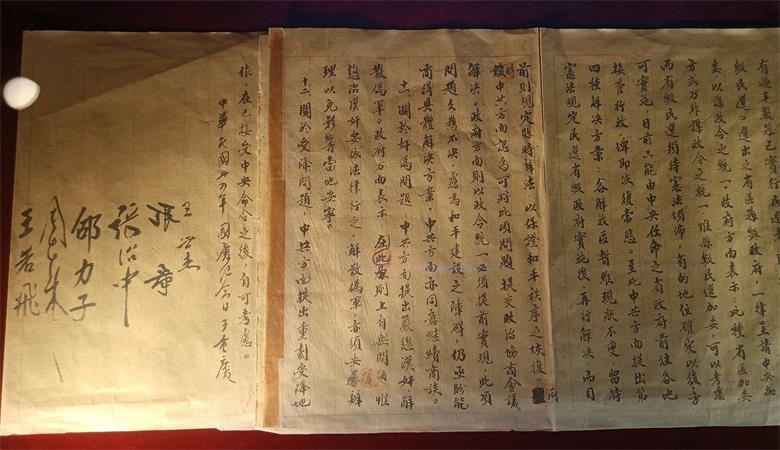 有過半數縣已實行民
級民選。選出之省區縣級政府,一律呈請中央加
委以謀政令之統一。政府方面表示 此種省區加委
方式乃非謀政令之統一,惟縣級民選加委可以考慮
而省級民選須待憲法頒佈,省的地位確定以後方
可實施。目前只能由中央任命之省政府前往各地
接管行政,俾即恢復常態。至此中共方面提出第
四種解決方案:各解放區暫維現狀不變,留待
憲法規定民選省級政府實施後再行解決,而目
前則規定臨時辦法,以保證和平秩序之恢復。同
時中共方面認為可將此項問題提交政治協商會議
解決。政府方面則以政令統一必須提前實現,此項
問題久懸不決,慮為和平建設之障碍,仍亟盼能
商得具體解決方案。中共方面亦同意繼續商談。
十一、關於奸偽問題,中共方面提出嚴懲漢奸解
散偽軍。政府方面表示 在此原則上自無問題,惟
懲治漢奸要依法律行之,解散偽軍亦須妥慎辦
理以免影響當地安寧。
十二、關於受降問題,中共方面提出重劃受降地
作。在已接受中央命令之後,自可考慮。
中華民國卅四年國慶紀念日于重慶
王世杰
張羣
張治中
邵力子
周恩來
王若飛